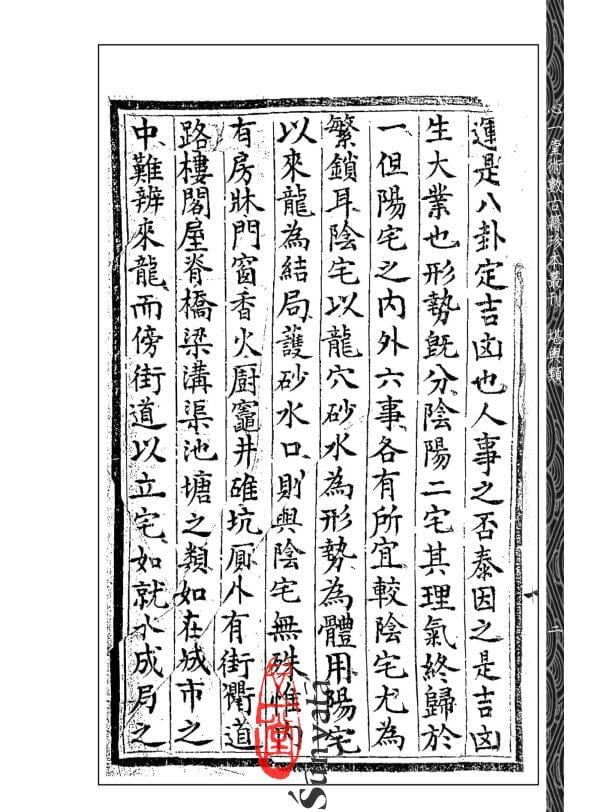 心一堂術數古籍珍本叢刊 堪輿類
二
運是八卦定吉凶也人事之否泰因之是吉凶
生大業也形勢既分陰陽二宅其理氣終歸於
一但陽宅之內外六事各有所宜較陰宅尤為
繁鎖耳陰宅以龍穴砂水為形勢為體用陽宅
以來龍為結局護砂水口則與陰宅無殊惟內
有房牀門窗香火厨竈井碓坑厠外有街衢道
路樓閣屋脊橋梁溝渠池塘之類如在城市之
中難辨來龍而傍街道以立宅如就水成局之
心一堂
Sunyata